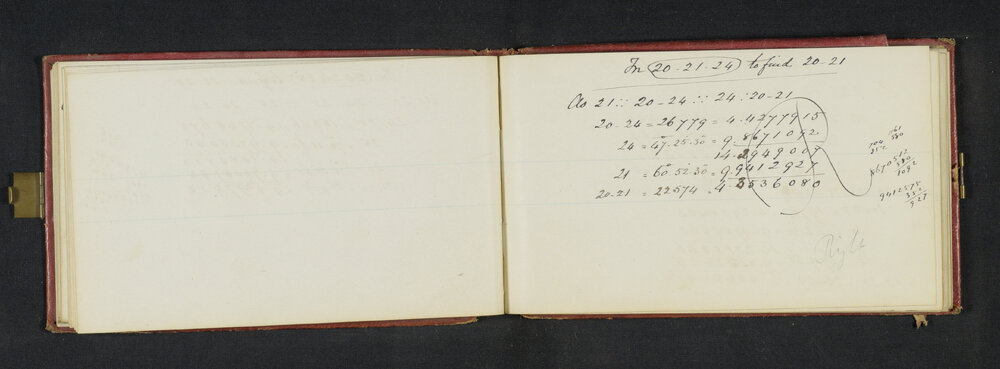 In (20-21-24) to find 20-21
As 21 :: 20-24 :: 24 : 20-21
20-24 = 26779 = 4.4277915
24 = 47.25.30 = 9.8671092
14.2949007
21 = 60.52.30 = 9.9412927
20-21 = 22574 = 4.3536080
8670512
580
1092
9412575
352
927
Right